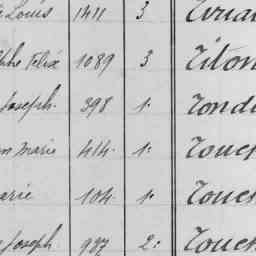 Louis 1411 3
Félix 1089 3 Titon
Joseph. 398 1.
Marie 414. 1. Touch
arie 104. 1. Touch
Joseph. 987 2. Touch